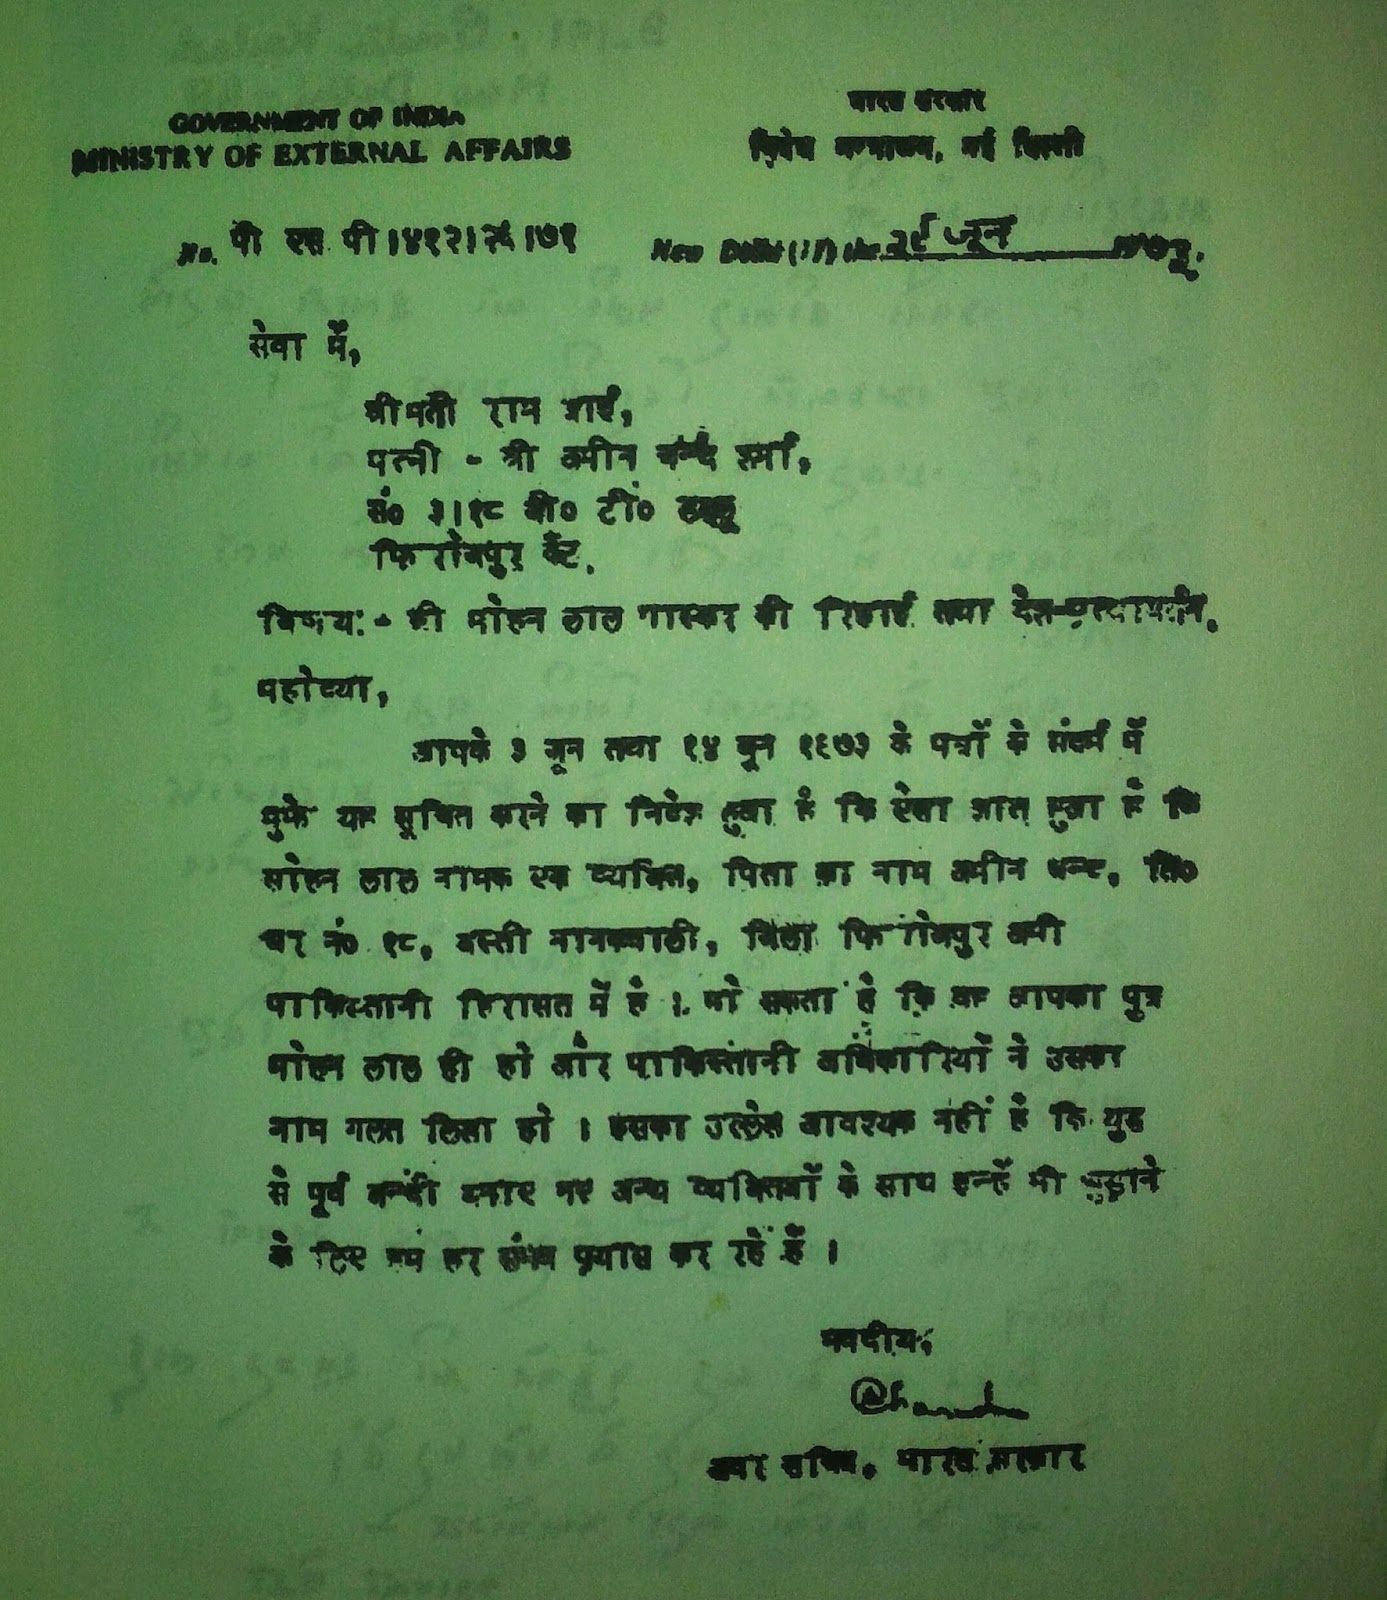 GOVERNMENT OF INDIA
MINISTRY OF EXTERNAL AFFAIRS
भारत सरकार
विदेश मन्त्रालय, नई दिल्ली
No. पी एस पी।४१२।२८।७१
New Delhi (11) the २९ जून
सेवा में,
श्रीमती राम बाई,
पत्नी - श्री अमीन चन्द शर्मा,
नं० ३।१८ बी० टी०
फिरोजपुर कैंट.
विषय:- श्री मोहन लाल भास्कर की रिहाई तथा देश-प्रत्यावर्तन.
महोदया,
आपके ३ जून तथा १४ जून १९७३ के पत्रों के संदर्भ में
मुझे यह सूचित करने का निदेश हुआ है कि ऐसा ज्ञात हुआ है कि
सोहन लाल नामक एक व्यक्ति, पिता का नाम अमीन चन्द, नि०
घर नं० १८, बस्ती नानकवाली, जिला फिरोजपुर अभी
पाकिस्तानी हिरासत में है । हो सकता है कि वह आपका पुत्र
मोहन लाल ही हो और पाकिस्तानी अधिकारियों ने उसका
नाम गलत लिखा हो । इसका उल्लेख आवश्यक नहीं है कि युद्ध
से पूर्व बन्दी बनाए गए अन्य व्यक्तियों के साथ इन्हें भी छुड़ाने
के लिए हम हर संभव प्रयास कर रहे हैं ।
भवदीय,
अवर सचिव, भारत सरकार